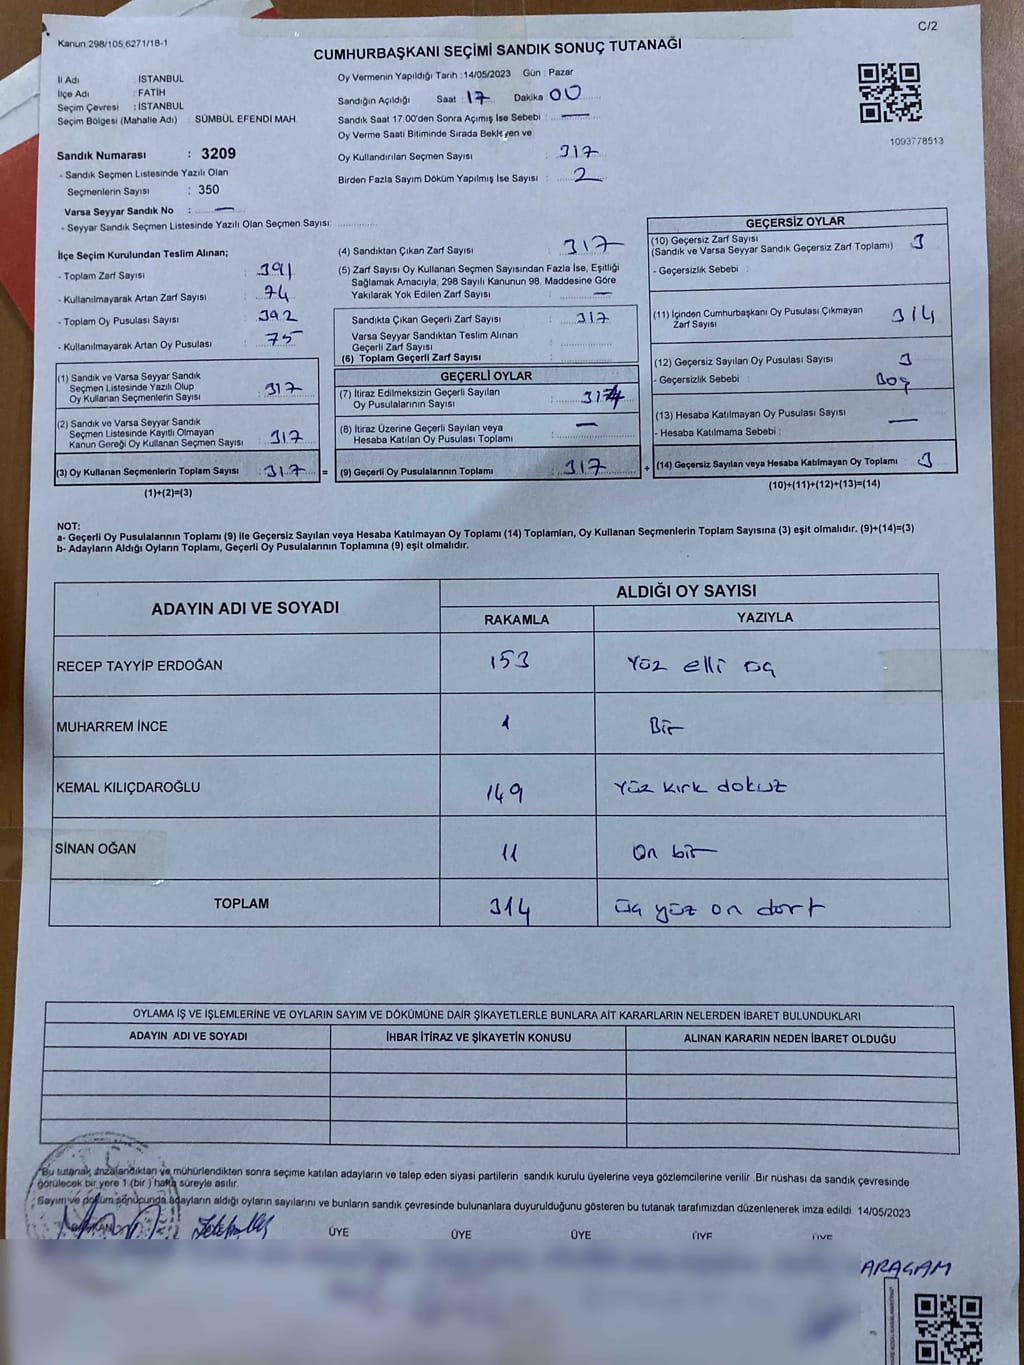 C/2
Kanun:298/105,6271/18-1
CUMHURBAŞKANI SEÇİMİ SANDIK SONUÇ TUTANAĞI
İl Adı : İSTANBUL
İlçe Adı : FATİH
Seçim Çevresi : İSTANBUL
Seçim Bölgesi (Mahalle Adı) : SÜMBÜL EFENDİ MAH
Sandık Numarası : 3209
- Sandık Seçmen Listesinde Yazılı Olan
Seçmenlerin Sayısı : 350
Varsa Seyyar Sandık No : —
- Seyyar Sandık Seçmen Listesinde Yazılı Olan Seçmen Sayısı:
Oy Vermenin Yapıldığı Tarih :14/05/2023 Gün : Pazar
Sandığın Açıldığı Saat : 17 Dakika 00
Sandık Saat 17:00'den Sonra Açımış İse Sebebi : —
Oy Verme Saati Bitiminde Sırada Bekleyen ve
Oy Kullandırılan Seçmen Sayısı : 317
Birden Fazla Sayım Döküm Yapılmış İse Sayısı : 2
1093778513
İlçe Seçim Kurulundan Teslim Alınan;
- Toplam Zarf Sayısı : 391
- Kullanılmayarak Artan Zarf Sayısı : 74
- Toplam Oy Pusulası Sayısı : 392
- Kullanılmayarak Artan Oy Pusulası : 75
(1) Sandık ve Varsa Seyyar Sandık
Seçmen Listesinde Yazılı Olup
Oy Kullanan Seçmenlerin Sayısı : 317
(2) Sandık ve Varsa Seyyar Sandık
Seçmen Listesinde Kayıtlı Olmayan
Kanun Gereği Oy Kullanan Seçmen Sayısı : 317
(3) Oy Kullanan Seçmenlerin Toplam Sayısı : 317 =
(1)+(2)=(3)
(4) Sandıktan Çıkan Zarf Sayısı : 317
(5) Zarf Sayısı Oy Kullanan Seçmen Sayısından Fazla İse, Eşitliği
Sağlamak Amacıyla, 298 Sayılı Kanunun 98. Maddesine Göre
Yakılarak Yok Edilen Zarf Sayısı : —
Sandıkta Çıkan Geçerli Zarf Sayısı : 317
Varsa Seyyar Sandıktan Teslim Alınan
Geçerli Zarf Sayısı :
(6) Toplam Geçerli Zarf Sayısı :
GEÇERLİ OYLAR
(7) İtiraz Edilmeksizin Geçerli Sayılan
Oy Pusulalarının Sayısı :
(8) İtiraz Üzerine Geçerli Sayılan veya
Hesaba Katılan Oy Pusulası Toplamı : —
(9) Geçerli Oy Pusulalarının Toplamı : 317 +
GEÇERSİZ OYLAR
(10) Geçersiz Zarf Sayısı
(Sandık ve Varsa Seyyar Sandık Geçersiz Zarf Toplamı) : 3
- Geçersizlik Sebebi :
(11) İçinden Cumhurbaşkanı Oy Pusulası Çıkmayan
Zarf Sayısı : 314
(12) Geçersiz Sayılan Oy Pusulası Sayısı : 3
- Geçersizlik Sebebi : Boş
(13) Hesaba Katılmayan Oy Pusulası Sayısı : —
- Hesaba Katılmama Sebebi :
(14) Geçersiz Sayılan veya Hesaba Katılmayan Oy Toplamı : 3
(10)+(11)+(12)+(13)=(14)
NOT:
a- Geçerli Oy Pusulalarının Toplamı (9) ile Geçersiz Sayılan veya Hesaba Katılmayan Oy Toplamı (14) Toplamları, Oy Kullanan Seçmenlerin Toplam Sayısına (3) eşit olmalıdır. (9)+(14)=(3)
b- Adayların Aldığı Oyların Toplamı, Geçerli Oy Pusulalarının Toplamına (9) eşit olmalıdır.
ADAYIN ADI VE SOYADI ALDIĞI OY SAYISI
RAKAMLA YAZIYLA
RECEP TAYYİP ERDOĞAN 153 Yüz elli üç
MUHARREM İNCE 1 Bir
KEMAL KILIÇDAROĞLU 149 Yüz kırk dokuz
SİNAN OĞAN 11 On bir
TOPLAM 314 üç yüz on dort
OYLAMA İŞ VE İŞLEMLERİNE VE OYLARIN SAYIM VE DÖKÜMÜNE DAİR ŞİKAYETLERLE BUNLARA AİT KARARLARIN NELERDEN İBARET BULUNDUKLARI
ADAYIN ADI VE SOYADI İHBAR İTİRAZ VE ŞİKAYETİN KONUSU ALINAN KARARIN NEDEN İBARET OLDUĞU
Bu tutanak imzalandıktan ve mühürlendikten sonra seçime katılan adayların ve talep eden siyasi partilerin sandık kurulu üyelerine veya gözlemcilerine verilir. Bir nüshası da sandık çevresinde
görülecek bir yere 1 (bir ) hafta süreyle asılır.
Sayım ve döküm sonucunda adayların aldığı oyların sayılarını ve bunların sandık çevresinde bulunanlara duyurulduğunu gösteren bu tutanak tarafımızdan düzenlenerek imza edildi 14/05/2023
BAŞKAN ÜYE ÜYE ÜYE ÜYE ÜYE
ARAGAM